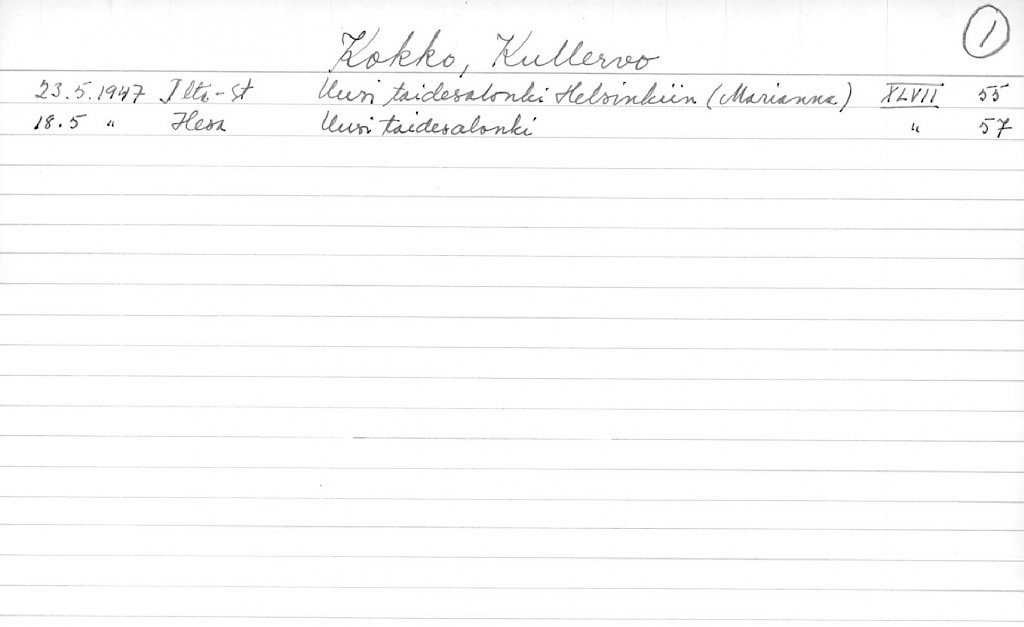 1
Kokko, Kullervo
23.5.1947 Ilta-St Uusi taidesalonki Helsinkiin (Marianna) XLVII 55
18.5 " Hesa Uusi taidesalonki " 57